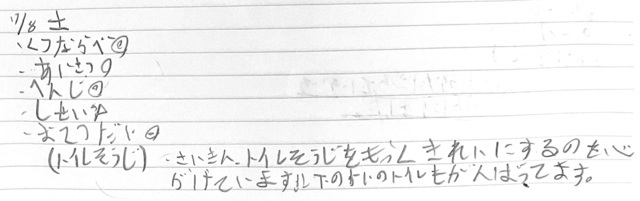 11/8 土
・くつならべ◎
・あいさつ○
・へんじ◎
・しせい☆
・おてつだい◎
(トイレそうじ) ・さいきん、トイレそうじをもっときれいにするのを心
がけています!!下の方のトイレもがんばってます。